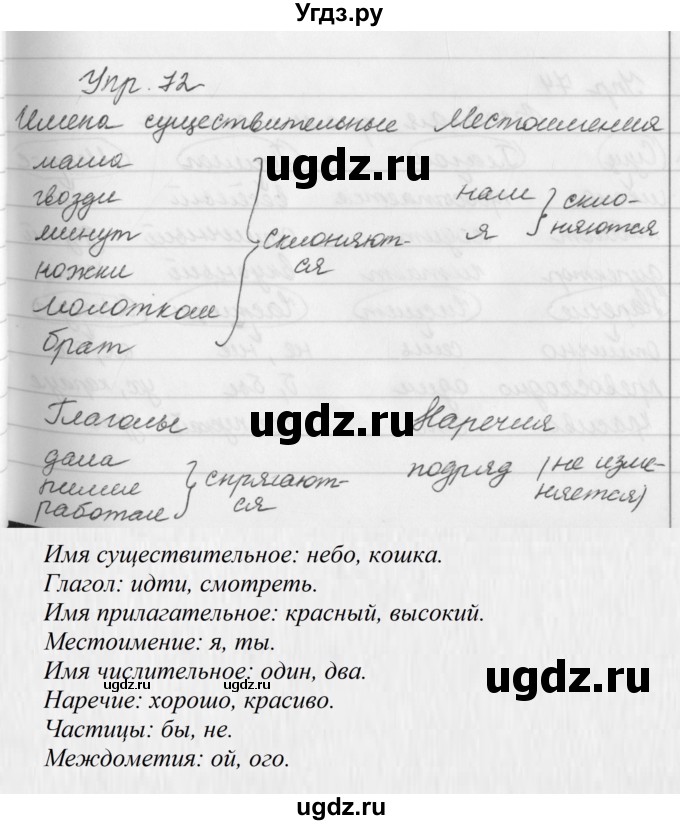 Угдз.ру
Упр. 72
Имена существительные Местоимения
маша
гвозди
минут
ножки
молотком
брат
склоняют-
ся
нам
я
скло-
няются
ugdz.ru
Глаголы Наречия
дала
пилил
работал
спрягают-
ся
подряд (не изме-
няется)
ugdz.ru
Имя существительное: небо, кошка.
Глагол: идти, смотреть.
Имя прилагательное: красный, высокий.
Местоимение: я, ты.
Имя числительное: один, два.
ugdz.ru ugdz.ru ugdz.ru
Наречие: хорошо, красиво.
Частицы: бы, не.
Междометия: ой, ого.
ugdz.ru